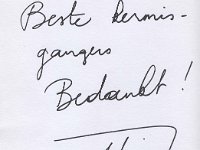 Beste kermis-
gangers
Bedankt!